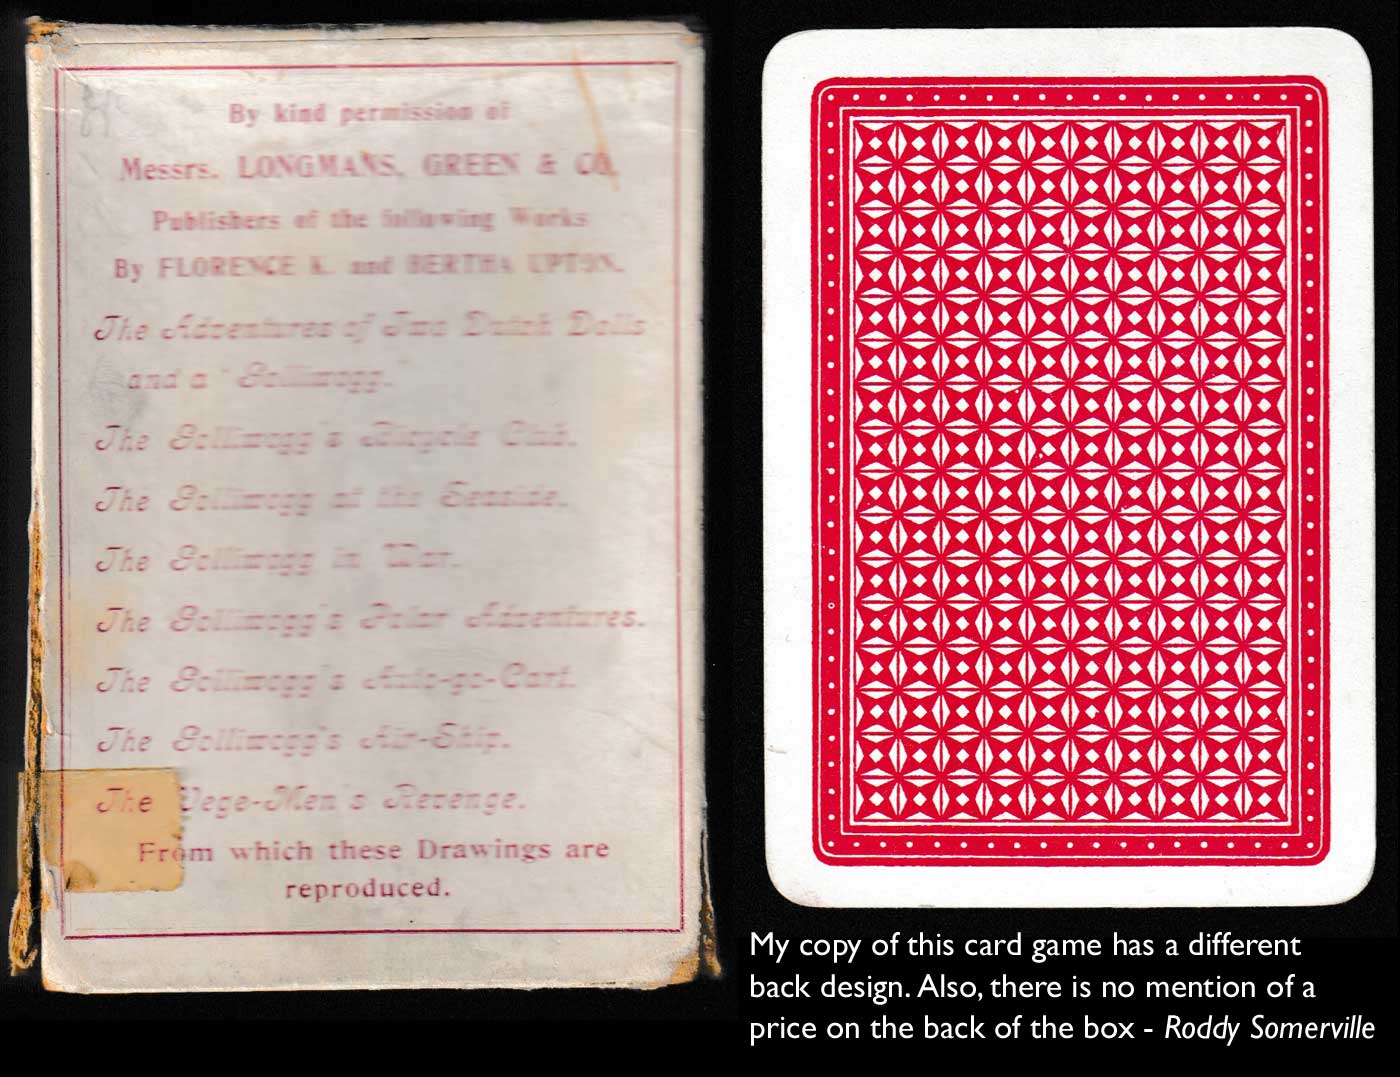 By kind permission of
Messrs. LONGMANS, GREEN & CO.
Publishers of the following Works
By FLORENCE K. and BERTHA UPTON.
The Adventures of Two Dutch Dolls
and a "Golliwogg."
The Golliwogg's Bicycle Club.
The Golliwogg at the Seaside.
The Golliwogg in War.
The Golliwogg's Polar Adventures.
The Golliwogg's Auto-go-Cart.
The Golliwogg's Air-Ship.
The Vege-Men's Revenge.
From which these Drawings are
reproduced.
My copy of this card game has a different
back design. Also, there is no mention of a
price on the back of the box - Roddy Somerville